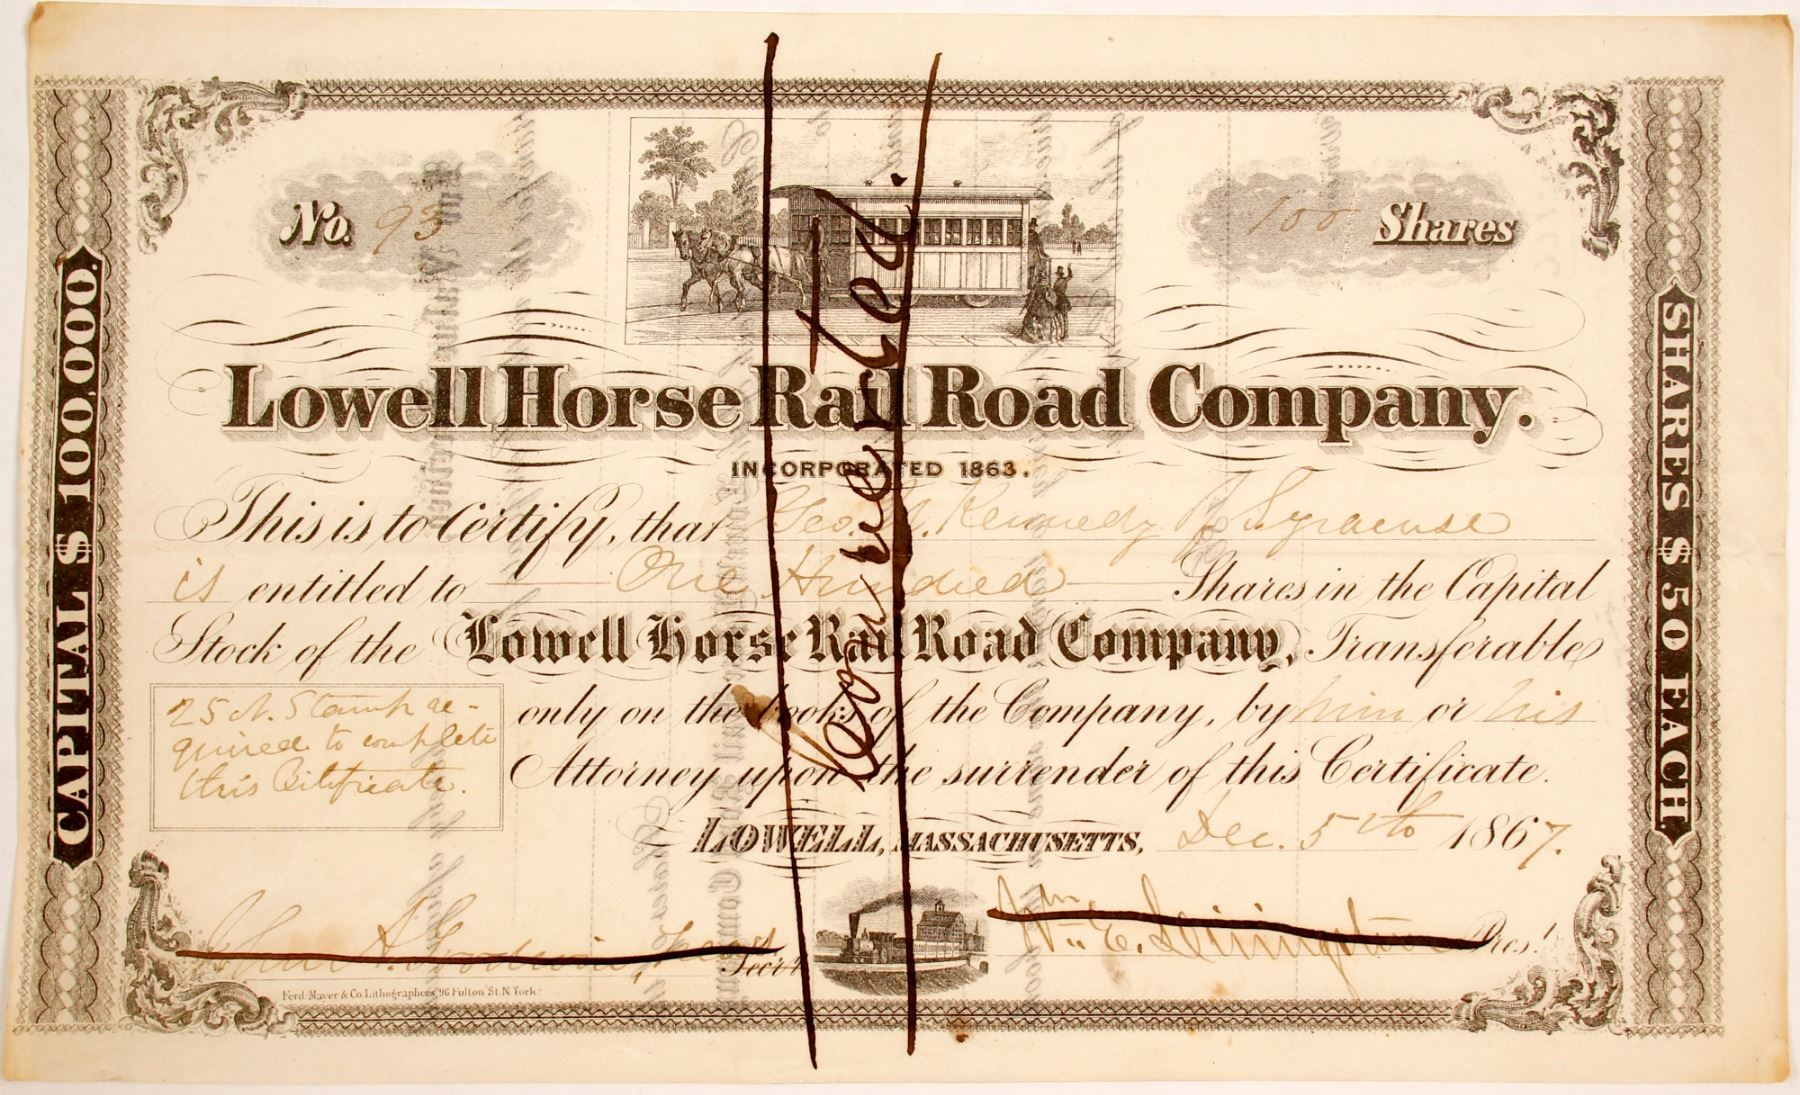 No. 93
100 Shares
Lowell Horse Rail Road Company.
INCORPORATED 1863.
This is to Certify, that Geo. N. Kennedy of Syracuse
is entitled to One Hundred Shares in the Capital
Stock of the Lowell Horse Rail Road Company, Transferable
only on the books of the Company, by him or his
Attorney upon the surrender of this Certificate.
25 ct. Stamp re-
quired to complete
this Certificate.
LOWELL, MASSACHUSETTS, Dec. 5th 1867.
John A. Goodwin, Sec'y
Wm E. Livingston Pres't
Ferd. Mayer & Co. Lithographers, 96 Fulton St. N. York.
CAPITAL $ 100,000.
SHARES $ 50 EACH.
Converted.